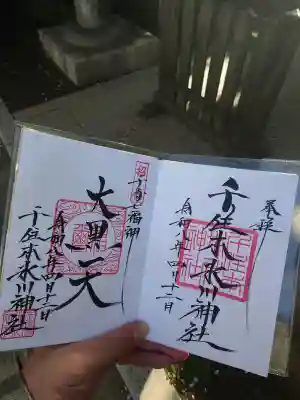 奉拝
千住本氷川神社
令和八年四月十一日
千寿七福神
大黒天
令和八年四月十一日
千住本氷川神社